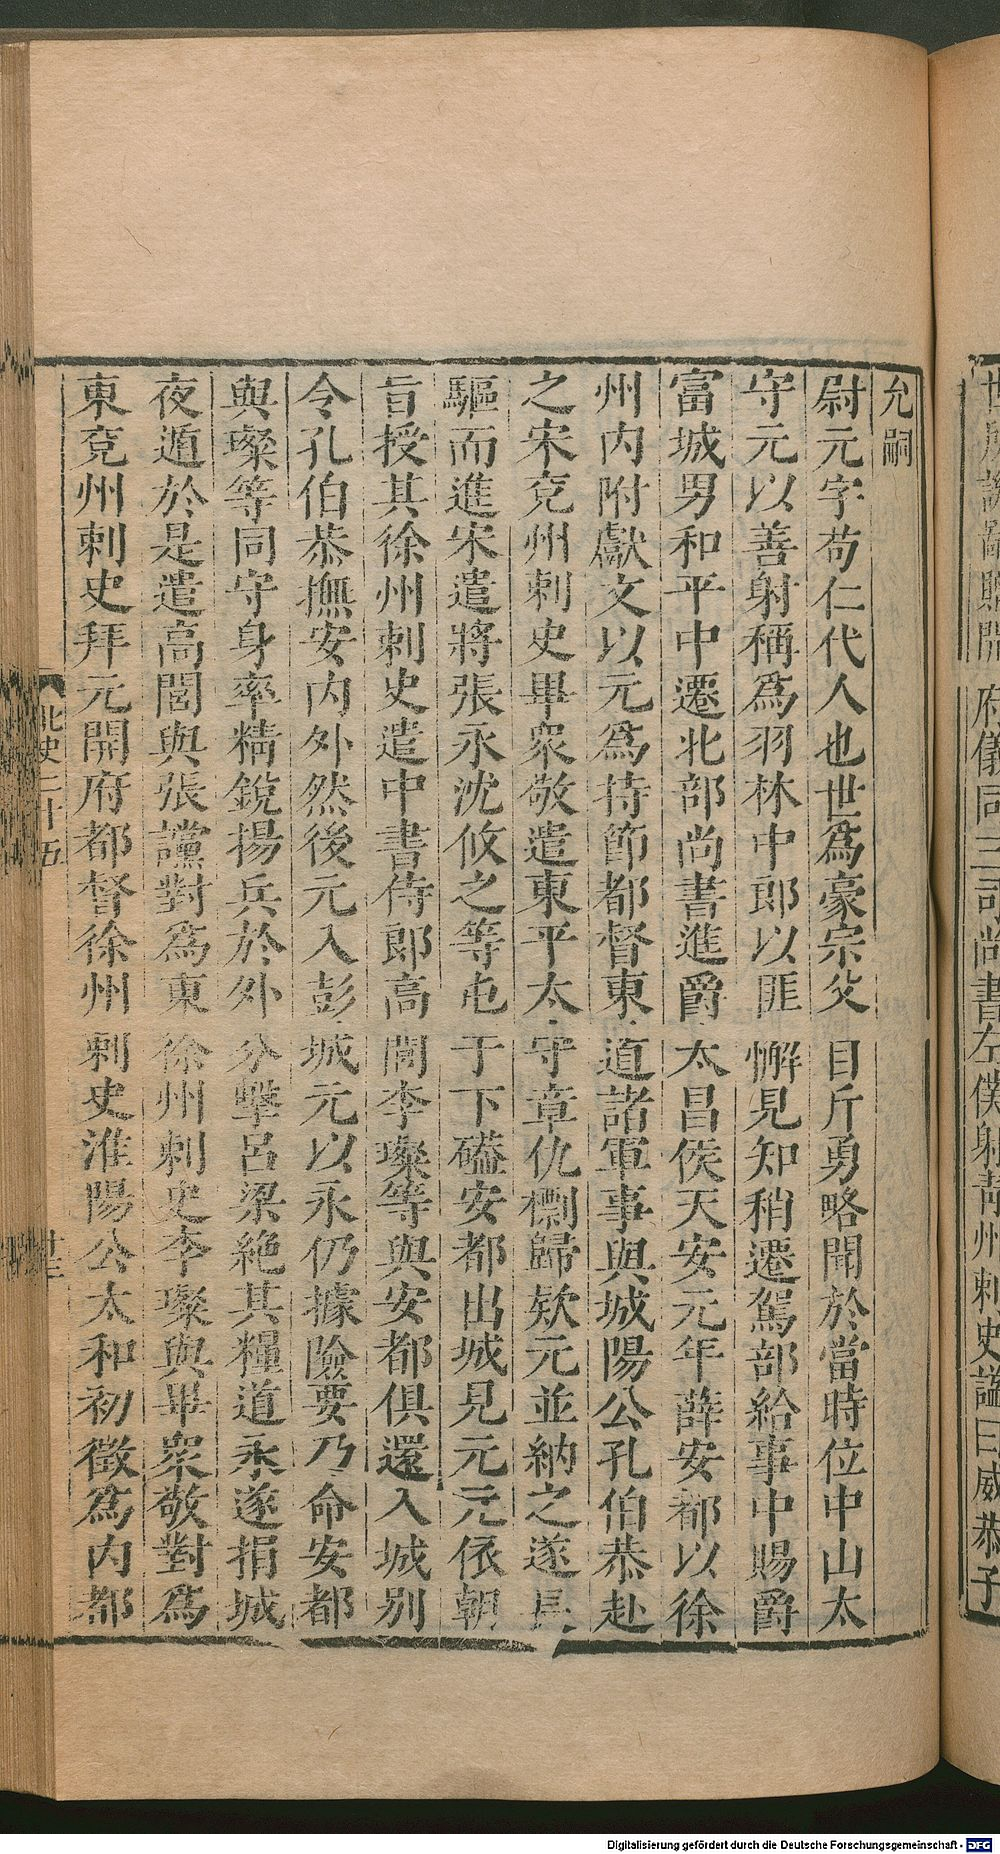 府儀同三司尚書左僕射青州刺史謚曰威恭子
允嗣
尉元字苟仁代人也世爲豪宗父目斤勇略聞於當時位中山太
守元以善射稱爲羽林中郎以匪懈見知稍遷駕部給事中賜爵
富城男和平中遷北部尚書進爵太昌侯天安元年薛安都以徐
州内附獻文以元爲持節都督東道諸軍事與城陽公孔伯恭赴
之宋兗州刺史畢衆敬遣東平太守章仇㯹歸欵元並納之遂長
驅而進宋遣將張永沈攸之等屯于下磕安都出城見元元依朝
旨授其徐州刺史遣中書侍郎高閭李璨等與安都俱還入城别
令孔伯恭撫安内外然後元入彭城元以永仍據險要乃命安都
與璨等同守身率精銳揚兵於外分擊呂梁絶其糧道永遂捐城
夜遁於是遣高閭與張讜對爲東徐州刺史李璨與畢衆敬對爲
東兗州刺史拜元開府都督徐州刺史淮陽公太和初徵爲内都
北史二十五
廿三
Digitalisierung gefördert durch die Deutsche Forschungsgemeinschaft - DFG